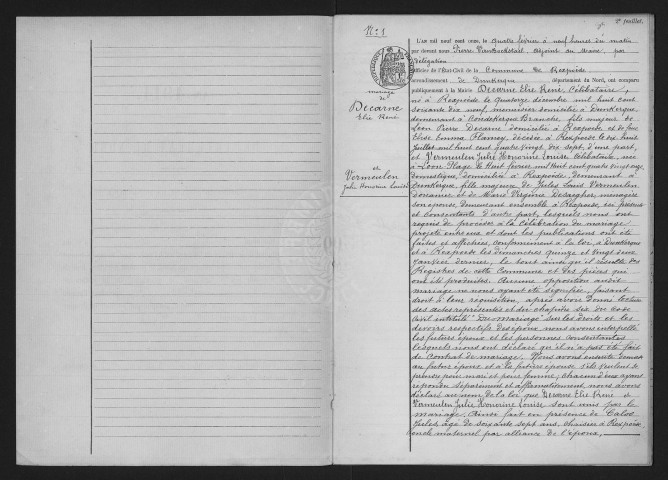 2e feuillet.
No 1
mariage
de
Decarne
Elie René
et
Vermeulen
Julie Honorine Louise
L'an mil neuf cent onze, le quatre février à neuf heures du matin
par devant nous Pierre adjoint au Maire, par
délégation
Officier de l'État-Civil de la Commune de Rexpoëde
arrondissement de Dunkerque département du Nord, ont comparu
publiquement à la Mairie Decarne Elie René, Célibataire,
né à Rexpoëde le quatorze décembre mil huit cent
soixante dix neuf, domicilié à Dunkerque
demeurant à Coudekerque Branche, fils majeur de
Léon Pierre Decarne domicilié à Rexpoëde et de feue
Elise Emma Plancey décédée à Rexpoëde le dix huit
Juillet mil huit cent quatre vingt dix sept, d'une part,
et Vermeulen Julie Honorine Louise Célibataire, née
à Loon-Plage le huit février mil huit cent quatre vingt
domestique, domiciliée à Rexpoëde, demeurant à
Dunkerque, fille majeure de Jules Louis Vermeulen
et de Marie Virginie ménagère
son épouse, demeurant ensemble à Rexpoëde, ici présents
et consentants d'autre part, lesquels nous ont
requis de procéder à la célébration du mariage
projeté entre eux et dont les publications ont été
faites et affichées, conformément à la loi, à Dunkerque
et à Rexpoëde les dimanches quinze et vingt deux
janvier dernier, le tout ainsi qu'il résulte des
Registres de cette Commune et des pièces qui
ont été produites. Aucune opposition audit
mariage ne nous ayant été signifiée, faisant
droit à leur réquisition, après avoir donné lecture
des actes représentés et du chapitre six du code
civil intitulé "Du Mariage" sur les droits et les
devoirs respectifs des époux nous avons interpellé
les futurs époux et les personnes consentantes
lesquels nous ont déclaré qu'il n'a pas été fait
de contrat de mariage. Nous avons ensuite demandé
au futur époux et à la future épouse s'ils veulent se
prendre pour mari et pour femme; chacun d'eux ayant
répondu séparément et affirmativement, nous avons
déclaré au nom de la loi que Decarne Elie René et
Vermeulen Julie Honorine Louise sont unis par le
mariage. Ainsi fait en présence de Caloo
Jules âgé de soixante sept ans, chaisier à Rexpoëde
oncle maternel par alliance de l'époux,